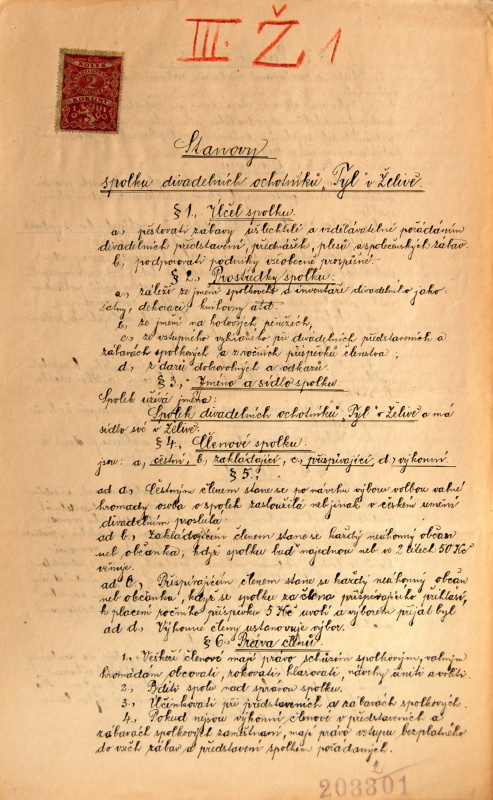 III. Ž 1
KOLEK
2
KORUNY
Stanovy
spolku divadelních ochotníků „Tyl" v Želivě.
§ 1., Účel spolku.
a., pěstovati zábavy ušlechtilé a vzdělávatelné pořádáním
divadelních představení, přednášek, plesů, a společenských zábav.
b., podporovati podniky všeobecně prospěšné.
§ 2., Prostředky spolku:
a., záleží ze jmění spolkového a inventáře divadelního jako:
šatny, dekorací, knihovny atd.
b., ze jmění na hotových penězích,
c., ze vstupného vybíraného při divadelních představeních a
zábavách spolkových a z ročních příspěvků členstva;
d., z darů dobrovolných a odkazů.
§ 3., Jméno a sídlo spolku.
Spolek užívá jména:
Spolek divadelních ochotníků „Tyl" v Želivě a má
sídlo své v Želivě.
§ 4., Členové spolku:
jsou: a., čestní, b., zakládající, c., přispívající, d., výkonní.
§ 5.,
ad a., Čestným členem stane se po návrhu výboru volbou valné
hromady osoba o spolek zasloužilá neb jinak v českém umění
divadelním proslulá.
ad b., Zakládajícím členem stane se každý neúhonný občan
neb občanka, když spolku buď najednou neb ve 2 létech 50 Kč
věnuje.
ad c., Přispívajícím členem stane se každý neúhonný občan
neb občanka, když se spolku za člena přispívajícího přihlásí,
k placení ročního příspěvku 5 Kč uvolí a výborem přijat byl
ad d., Výkonné členy ustanovuje výbor.
§ 6., Práva členů
1., Veškeří členové mají právo schůzím spolkovým, valným
hromadám obcovati, rokovati, hlasovati, návrhy činiti a voliti.
2., Bdíti spolu nad správou spolku.
3., Účinkovati při představeních a zábavách spolkových.
4., Pokud nejsou výkonní členové v představeních a
zábavách spolkových zaměstnáni, mají právo vstupu bezplatného
do všech zábav a představení spolkem pořádaných.
2
203301